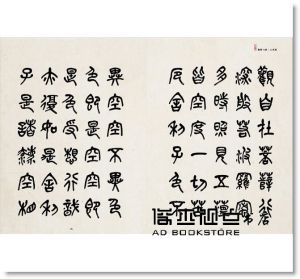 觀自在菩薩行
深般若波羅蜜
多時照見五蘊
皆空度一切苦
厄舍利子色不
異空空不異色
色即是空空即
是色受想行識
亦復如是舍利
子是諸法空相
AD BOOKSTORE